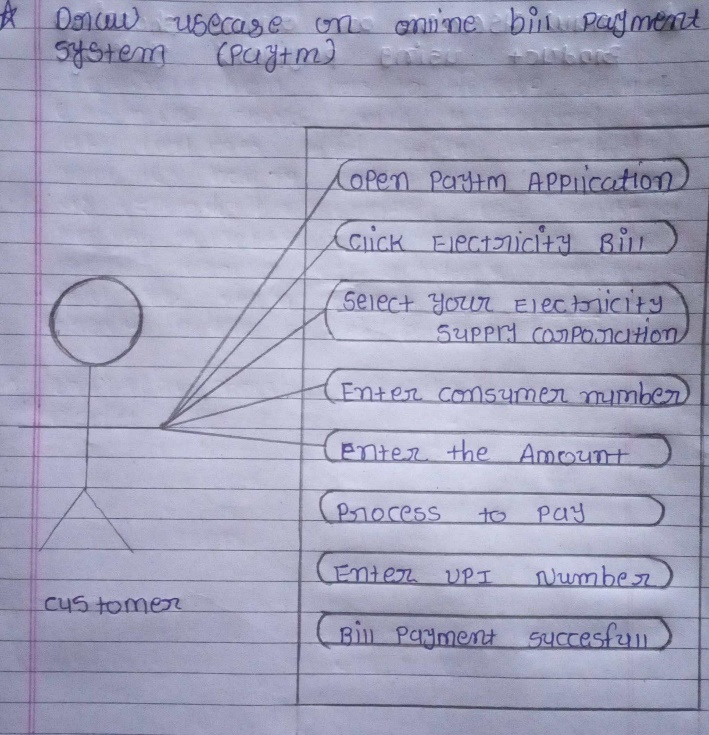 Draw usecase on online bill payment
system (Paytm)
Open Paytm Application
Click Electricity Bill
Select your Electricity
Supply corporation
Enter consumer number
Enter the Amount
Process to pay
Enter UPI Number
Bill Payment succesfull
customer